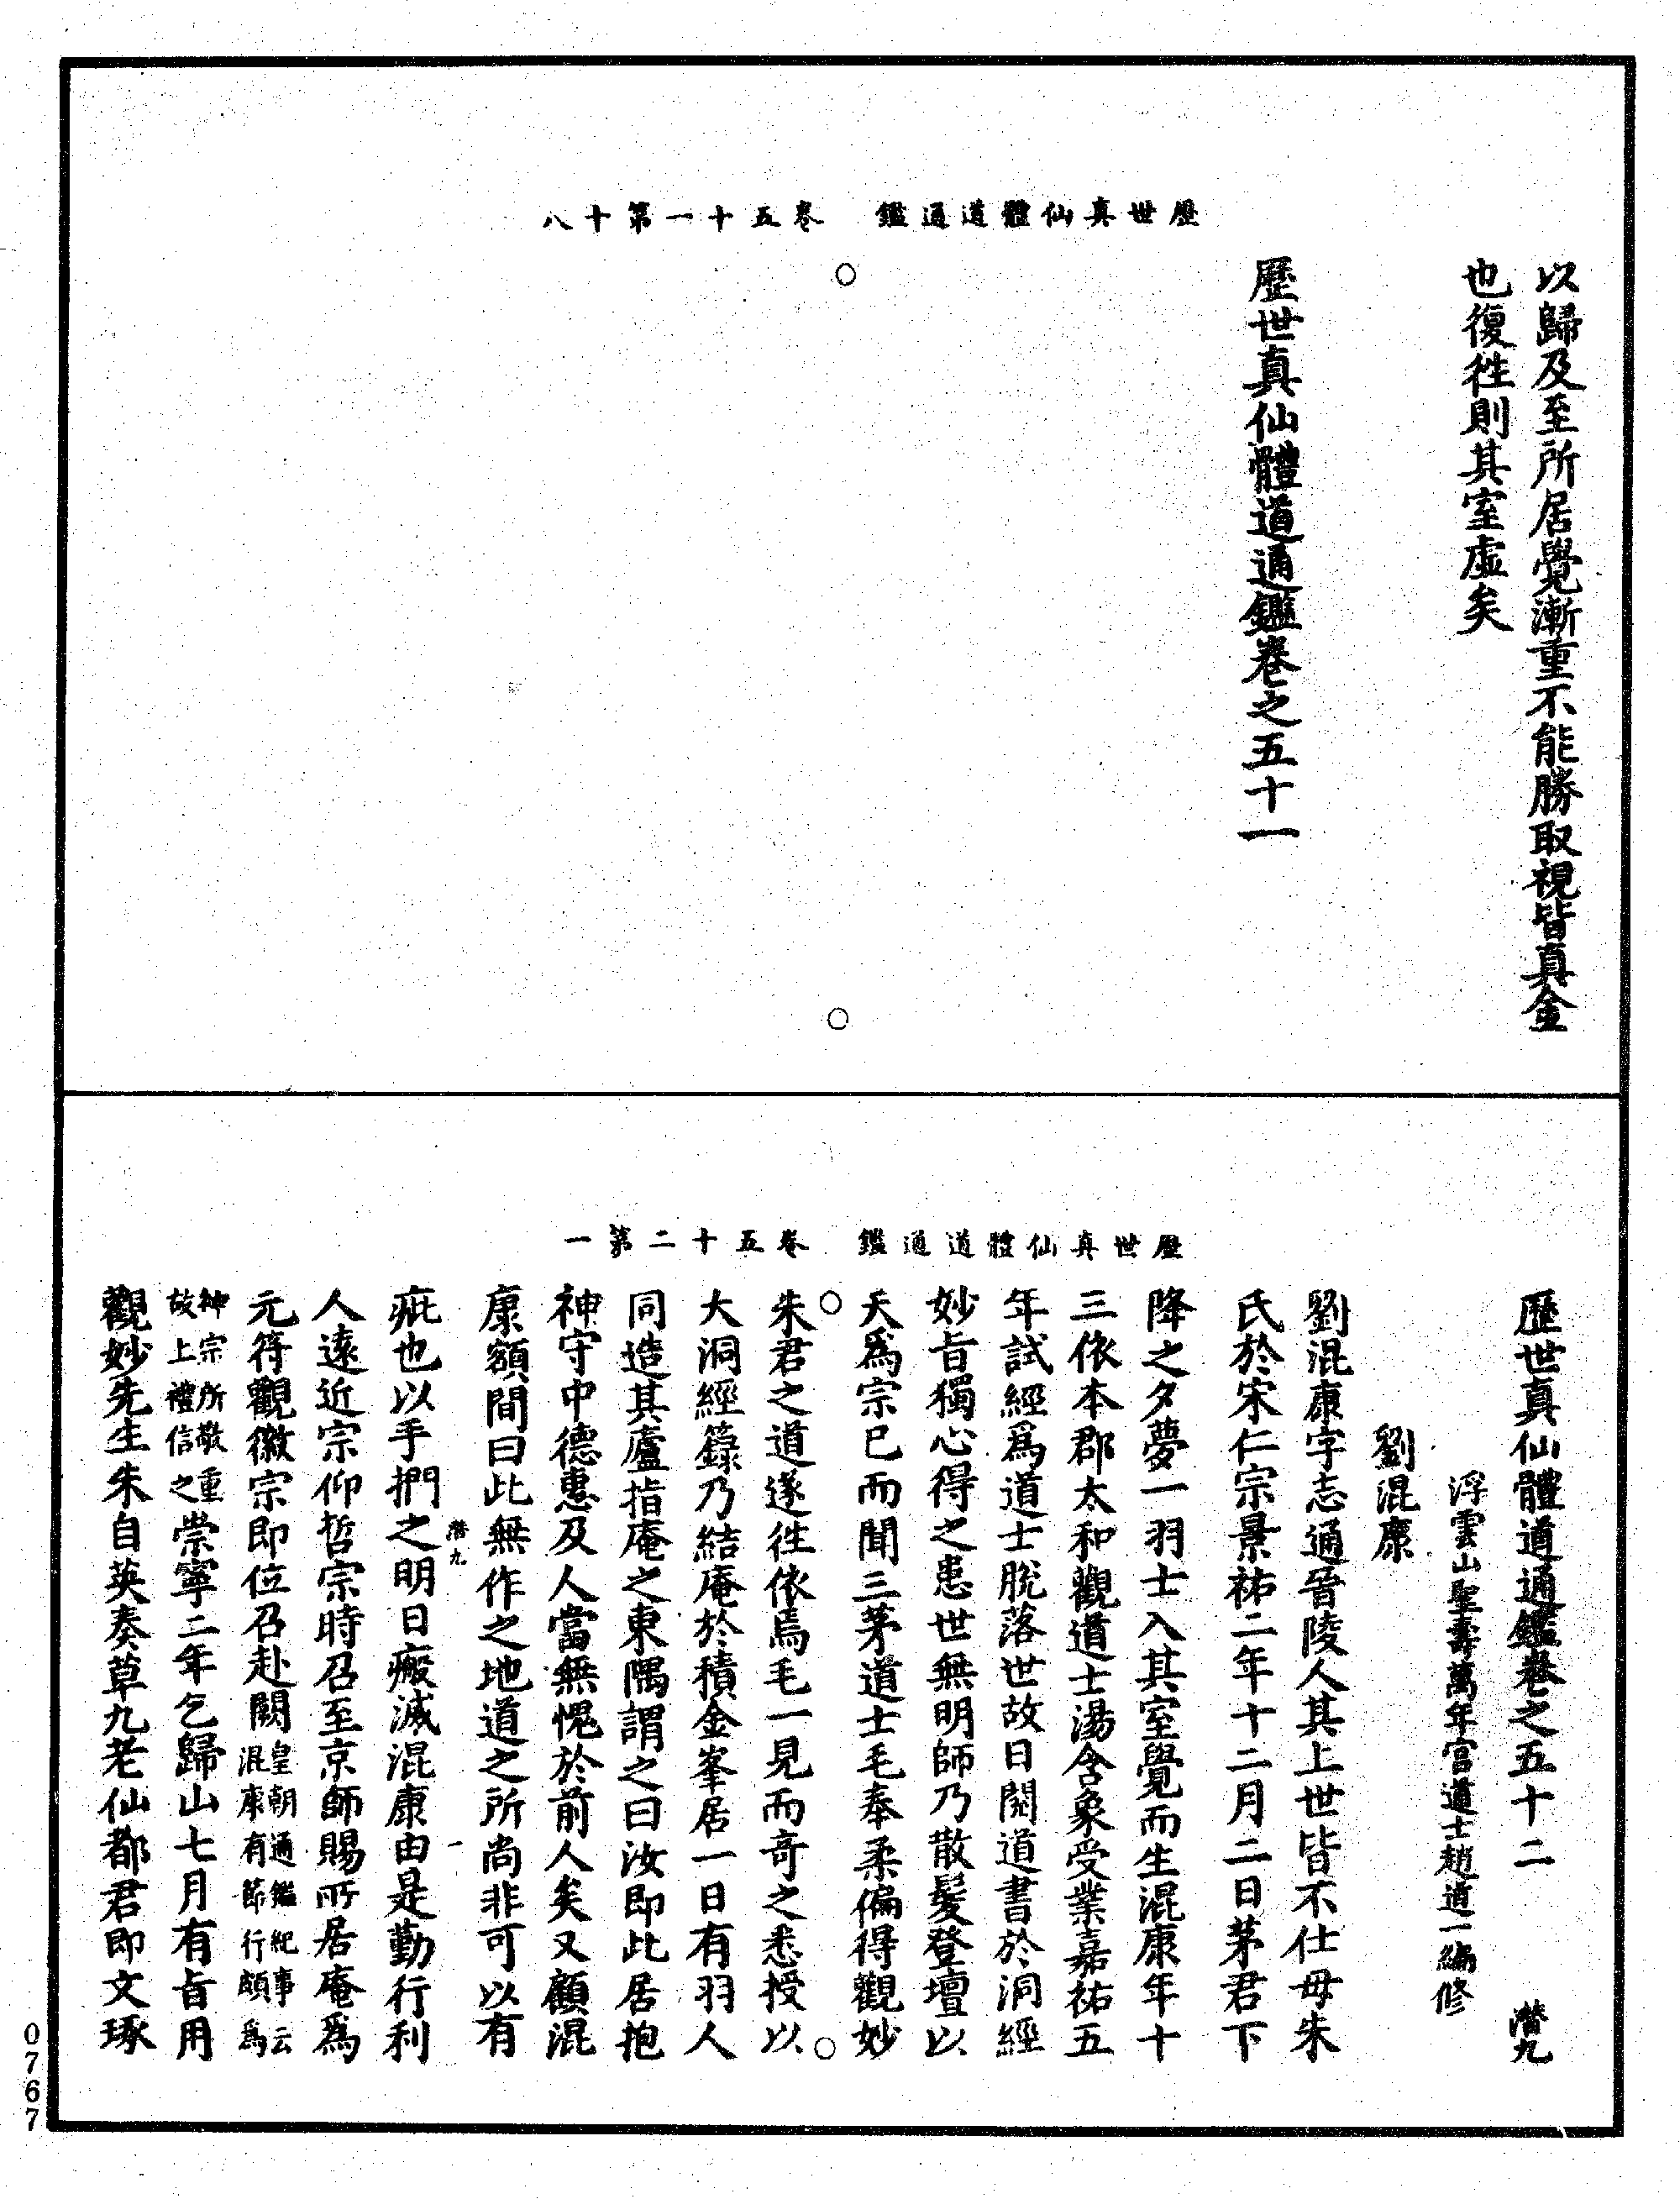 歷世真仙體道通鑑　卷五十一第十八
以歸及至所居覺漸重不能勝取視皆真金
也復徃則其室虛矣
歷世真仙體道通鑑卷之五十一
歷世真仙體道通鑑　卷五十二第一
歷世真仙體道通鑑卷之五十二　潛九
浮雲山聖壽萬年宮道士趙道一編修
劉混康
劉混康字志通晉陵人其上世皆不仕母朱
氏於宋仁宗景祐二年十二月二日茅君下
降之夕夢一羽士入其室覺而生混康年十
三依本郡太和觀道士湯含象受業嘉祐五
年試經爲道士脫落世故日閱道書於洞經
妙旨獨心得之患世無明師乃散髮登壇以
天爲宗已而聞三茅道士毛奉柔偏得觀妙
朱君之道遂徃依焉毛一見而奇之悉授以
大洞經籙乃結庵於積金峯居一日有羽人
同造其廬指庵之東隅謂之曰汝即此居抱
神守中德惠及人當無愧於前人矣又顧混
康額間曰此無作之地道之所尚非可以有
潛九　一
疵也以手捫之明日瘢滅混康由是勤行利
人遠近宗仰哲宗時召至京師賜所居庵爲
元符觀徽宗即位召赴闕皇朝通鑑紀事云混康有節行頗爲
神宗所敬重故上禮信之崇寧二年乞歸山七月有旨用
觀妙先生朱自英奏草九老仙都君即文琢
0767